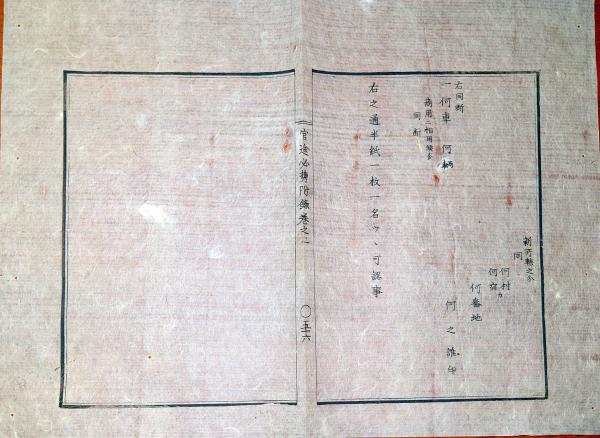 新川縣之分
同
何村カ
何宿
何番地
何之誰印
右同断
一何車 何輌
商用ニ相用候分
同断
右之通半紙一枚一名ツヽ可認事
官途必携附録巻之一
〇五十六